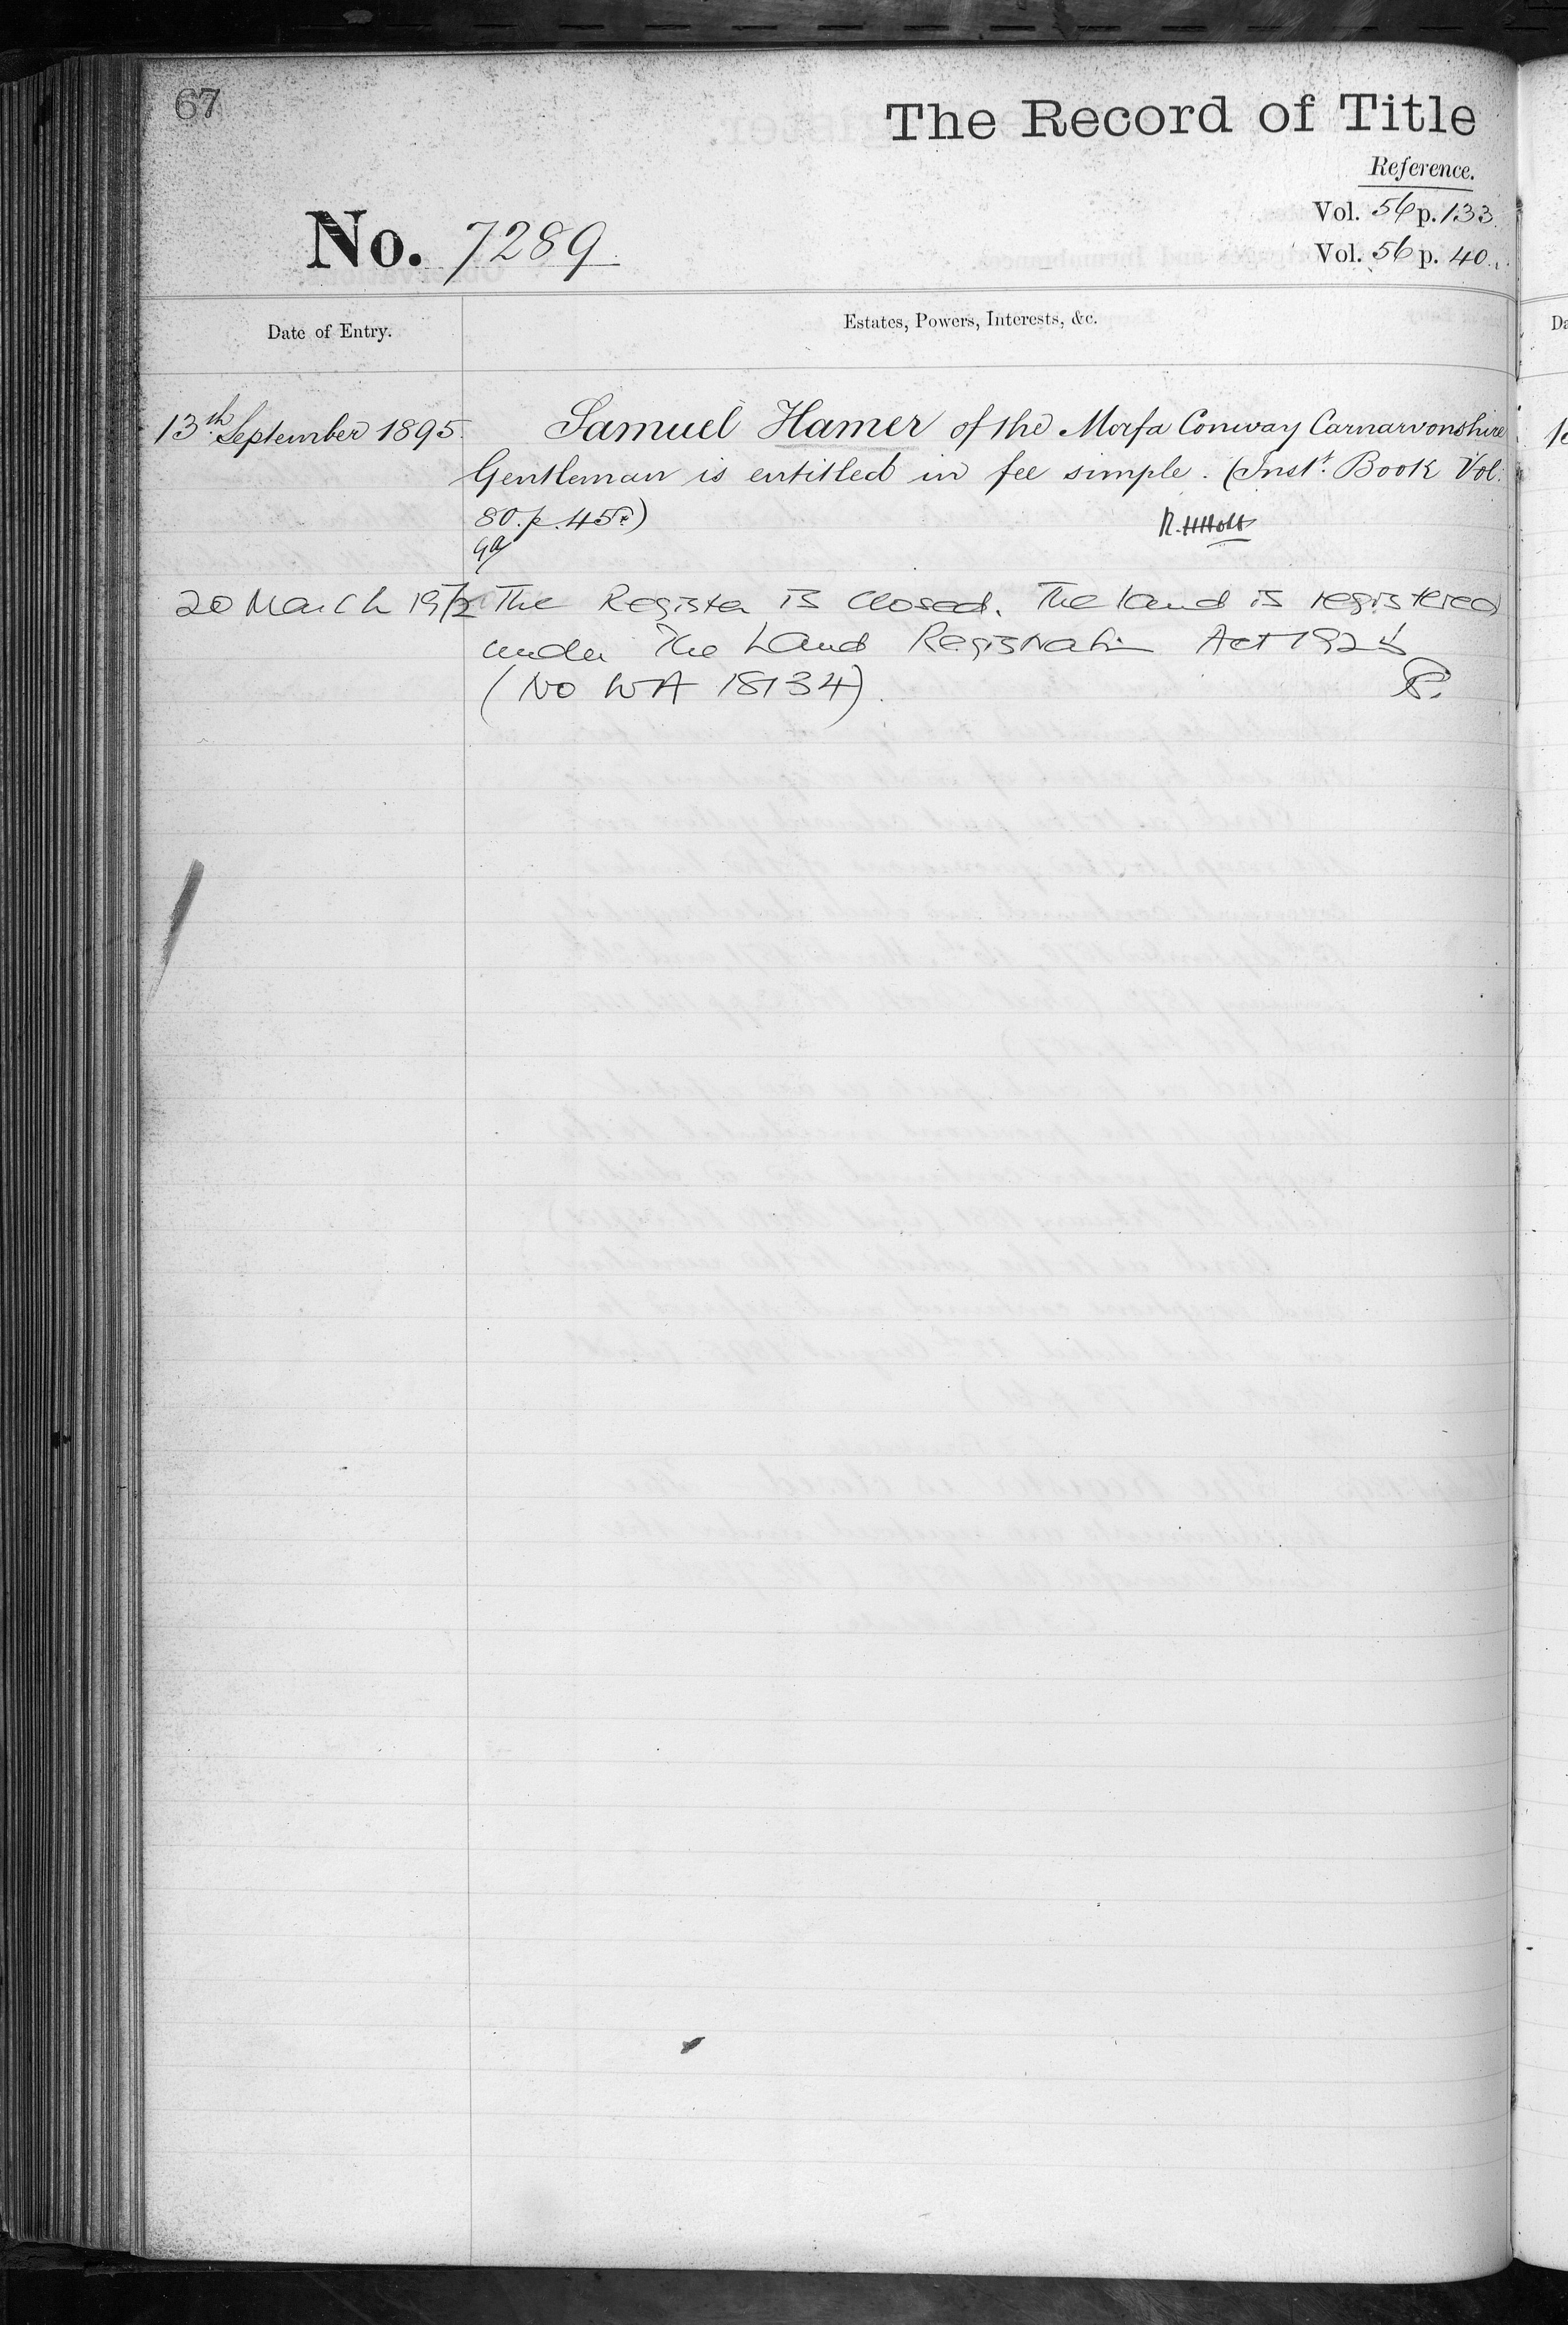 67
The Record of Title
Reference.
Vol. 56 p. 133
No. 7289
Vol. 56 p. 40
Date of Entry.
Estates, Powers, Interests, &c.
13th September 1895.
Samuel Hamer of the Morfa Conway Carnarvonshire
Gentleman is entitled in fee simple. (Inst. Book Vol:
80. p. 45)
R. H Holt
20 March 1972 The Register is closed. The land is registered
under The Land Registration Act 1925
(No WA 18134).